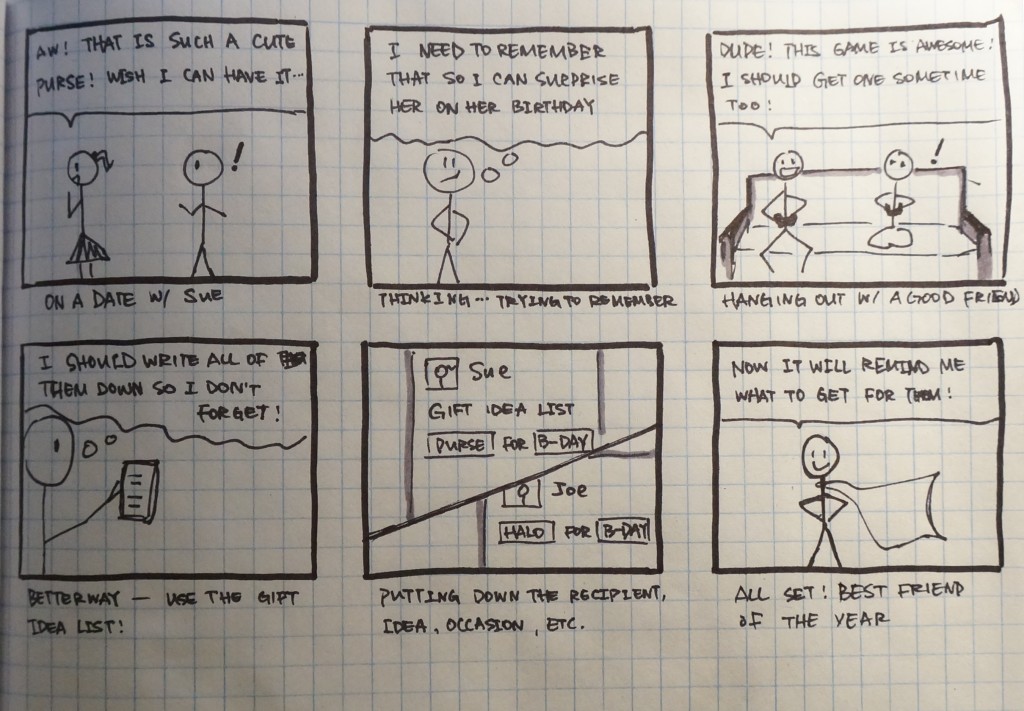 AW! THAT IS SUCH A CUTE
PURSE! WISH I CAN HAVE IT...
!
ON A DATE W/ SUE
I NEED TO REMEMBER
THAT SO I CAN SURPRISE
HER ON HER BIRTHDAY
THINKING... TRYING TO REMEMBER
DUDE! THIS GAME IS AWESOME!
I SHOULD GET ONE SOMETIME
TOO!
!
HANGING OUT W/ A GOOD FRIEND
I SHOULD WRITE ALL OF
THEM DOWN SO I DON'T
FORGET!
BETTER WAY — USE THE GIFT
IDEA LIST!
Sue
GIFT IDEA LIST
PURSE FOR B-DAY
Joe
HALO FOR B-DAY
PUTTING DOWN THE RECIPIENT,
IDEA, OCCASION, ETC.
NOW IT WILL REMIND ME
WHAT TO GET FOR THEM!
ALL SET! BEST FRIEND
OF THE YEAR